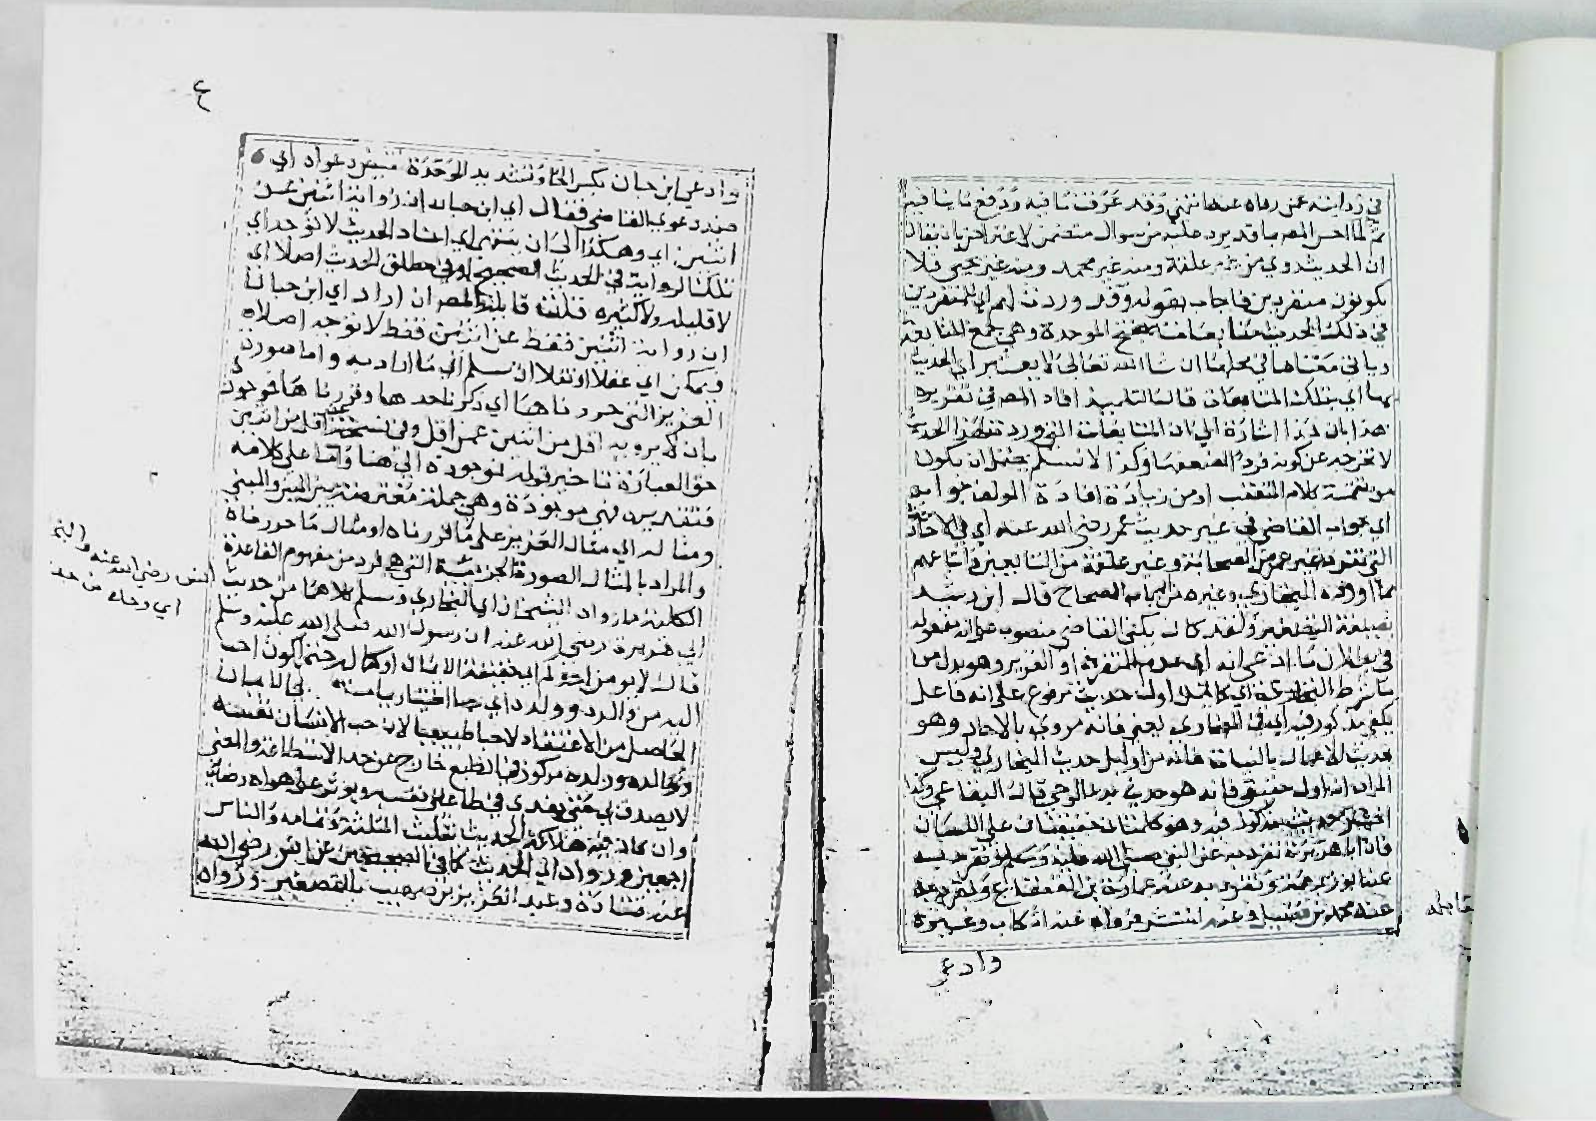 في روايته عمن رواه عنه انتهى وقد عرفت ما فيه ودفع ما ينافيه
ثم لما احس المص بما قد يرد عليه من سوال متضمن لاعتراض بان يقال
ان الحديث روي من غير علقمة ومنه غير محمد ومنه غير يحيى فلا
يكونون منفردين فاجاب بقوله وقد وردت لهم اي للمنفردين
في ذلك الحديث متابعات بفتح الموحدة وهي جمع المتابعة
وياتي معناها في محلها ان شا الله تعالى لا يعتبر اي الحديث
بها اي بتلك المتابعات قال التلميذ افاد المص في تقريره
هذا بان فيه اشارة الي ان المتابعات التي وردت لهذا الحديث
لا تخرجه عن كونه فردا لضعفها وكذا لا نسلم يحتمل ان يكون
من تتمة كلام المتعقب او من زيادة افادة المولف جوابه
اي جواب القاضي في غير حديث عمر رضي الله عنه اي في الاحاديث
التي تفرد بها غير عمر من الصحابة وغير علقمة من التابعين واتباعهم
مما اورده البخاري وغيره من ارباب الصحاح قال ابن رشيد
بصيغة التصغير ولقد كان يكفي القاضي منصوب على انه مفعوله
في بطلان ما ادعى انه اي عدم التفرد او العزيز وهو بدل من ما
شرط البخاري اي كما قيل اول حديث مرفوع على انه فاعل
يكفي مذكور فيه اي في البخاري يعني فانه مروي بالاحاد وهو
حديث الاعمال بالنيات فانه من اوايل حديث البخاري وليس
المراد انه اول حقيقي فانه هو حديث بدء الوحي قال البقاعي وكذا
اخر حديث مذكور فيه وهو كلمتان خفيفتان على اللسان
فان ابا هريرة تفرد به عن النبي صلى الله عليه وسلم وتفرد به
عنه ابو زرعة وتفرد به عنه عمارة بن القعقاع وتفرد به
عنه محمد بن فضيل وعنه انتشر فرواه عنه اشكاب وغيره
وادعى
٤
وادعى ابن حبان بكسر الحا وتشديد الموحدة نقيض دعواه اي
ضد دعوى القاضي فقال اي ابن حبان ان رواية اثنين عن
اثنين اي وهكذا الى ان ينتهي اي اسناد الحديث لا توجد اي
تلك الرواية في الحديث الصحيح او في مطلق الحديث اصلا اي
لا قليلة ولا كثيرة قلت قايله المص ان اراد اي ابن حبان
ان رواية اثنين فقط عن اثنين فقط لا توجد اصلا
فيمكن اي عقلا او نقلا ان نسلم اي ما اراد به واما صورة
العزيز التي حررناها اي ذكرنا حدها وقررناها فموجودة
بان لا يرويه اقل من اثنين عمن اقل وفي نسخة عن اقل من اثنين
حق العبارة تاخير قوله موجودة الى هنا واما على كلامه
فتقديره فهي موجودة وهي جملة معترضة بين المبين والمبني
ومثاله اي مثال العزيز على ما قررناه او مثال ما حررناه
والمراد بالمثال الصورة الجزئية التي هي فرد من مفهوم القاعدة
الكلية ما رواه الشيخان اي البخاري ومسلم كلاهما من حديث
انس رضي الله عنه والبخاري
اي وحده من حديث
ابي هريرة رضي الله عنه ان رسول الله صلى الله عليه وسلم
قال لا يومن احدكم اي حقيقة الايمان او كماله حتى اكون احب
اليه من والده وولده اي حبا اختياريا
الحاصل من الاعتقاد لا حبا طبيعيا لان حب الانسان نفسه
ووالده وولده مركوز في الطبع خارج عن حد الاستطاعة والمعنى
لا يصدق بي حتى يفدي في طاعتي نفسه ويوثر على هواه رضاي
وان كان فيه هلاكه الحديث بتثليث المثلثة وتمامه والناس
اجمعين ورواه اي الحديث كما في الصحيحين عن انس رضي الله
عنه قتادة وعبد العزيز بن صهيب بالتصغير ورواه